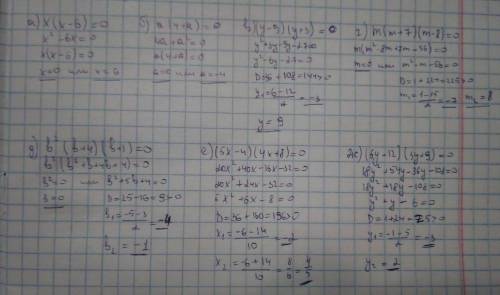 а) x(x-6)=0
x²-6x=0
x(x-6)=0
x=0 или x=6
б) a(4+a)=0
4a+a²=0
a(4+a)=0
a=0 или a=-4
в) (y-9)(y+3)=0
y²+3y-9y-27=0
y²-6y-27=0
D=36+108=144>0
y₁=6-12/2=-3
y=9
г) m(m+7)(m-8)=0
m(m²-8m+7m-56)=0
m=0 или m²-m-56=0
D=1+224=225>0
m₁=1-15/2=-7 m₂=8
д) b²(b+4)(b+1)=0
b²(b²+b+4b+4)=0
b²=0 или b²+5b+4=0
b=0 D=25-16=9>0
b₁=-5-3/2=-4
b₂=-1
е) (5x-4)(4x+8)=0
20x²+40x-16x-32=0
20x²+24x-32=0
5x²+6x-8=0
D=36+160=196>0
x₁=-6-14/10=-2
x₂=-6+14/10=8/10=4/5
ж) (6y-12)(3y+9)=0
18y²+54y-36y-108=0
18y²+18y-108=0
y²+y-6=0
D=1+24=25>0
y₁=-1+5/2=-3
y₂=2